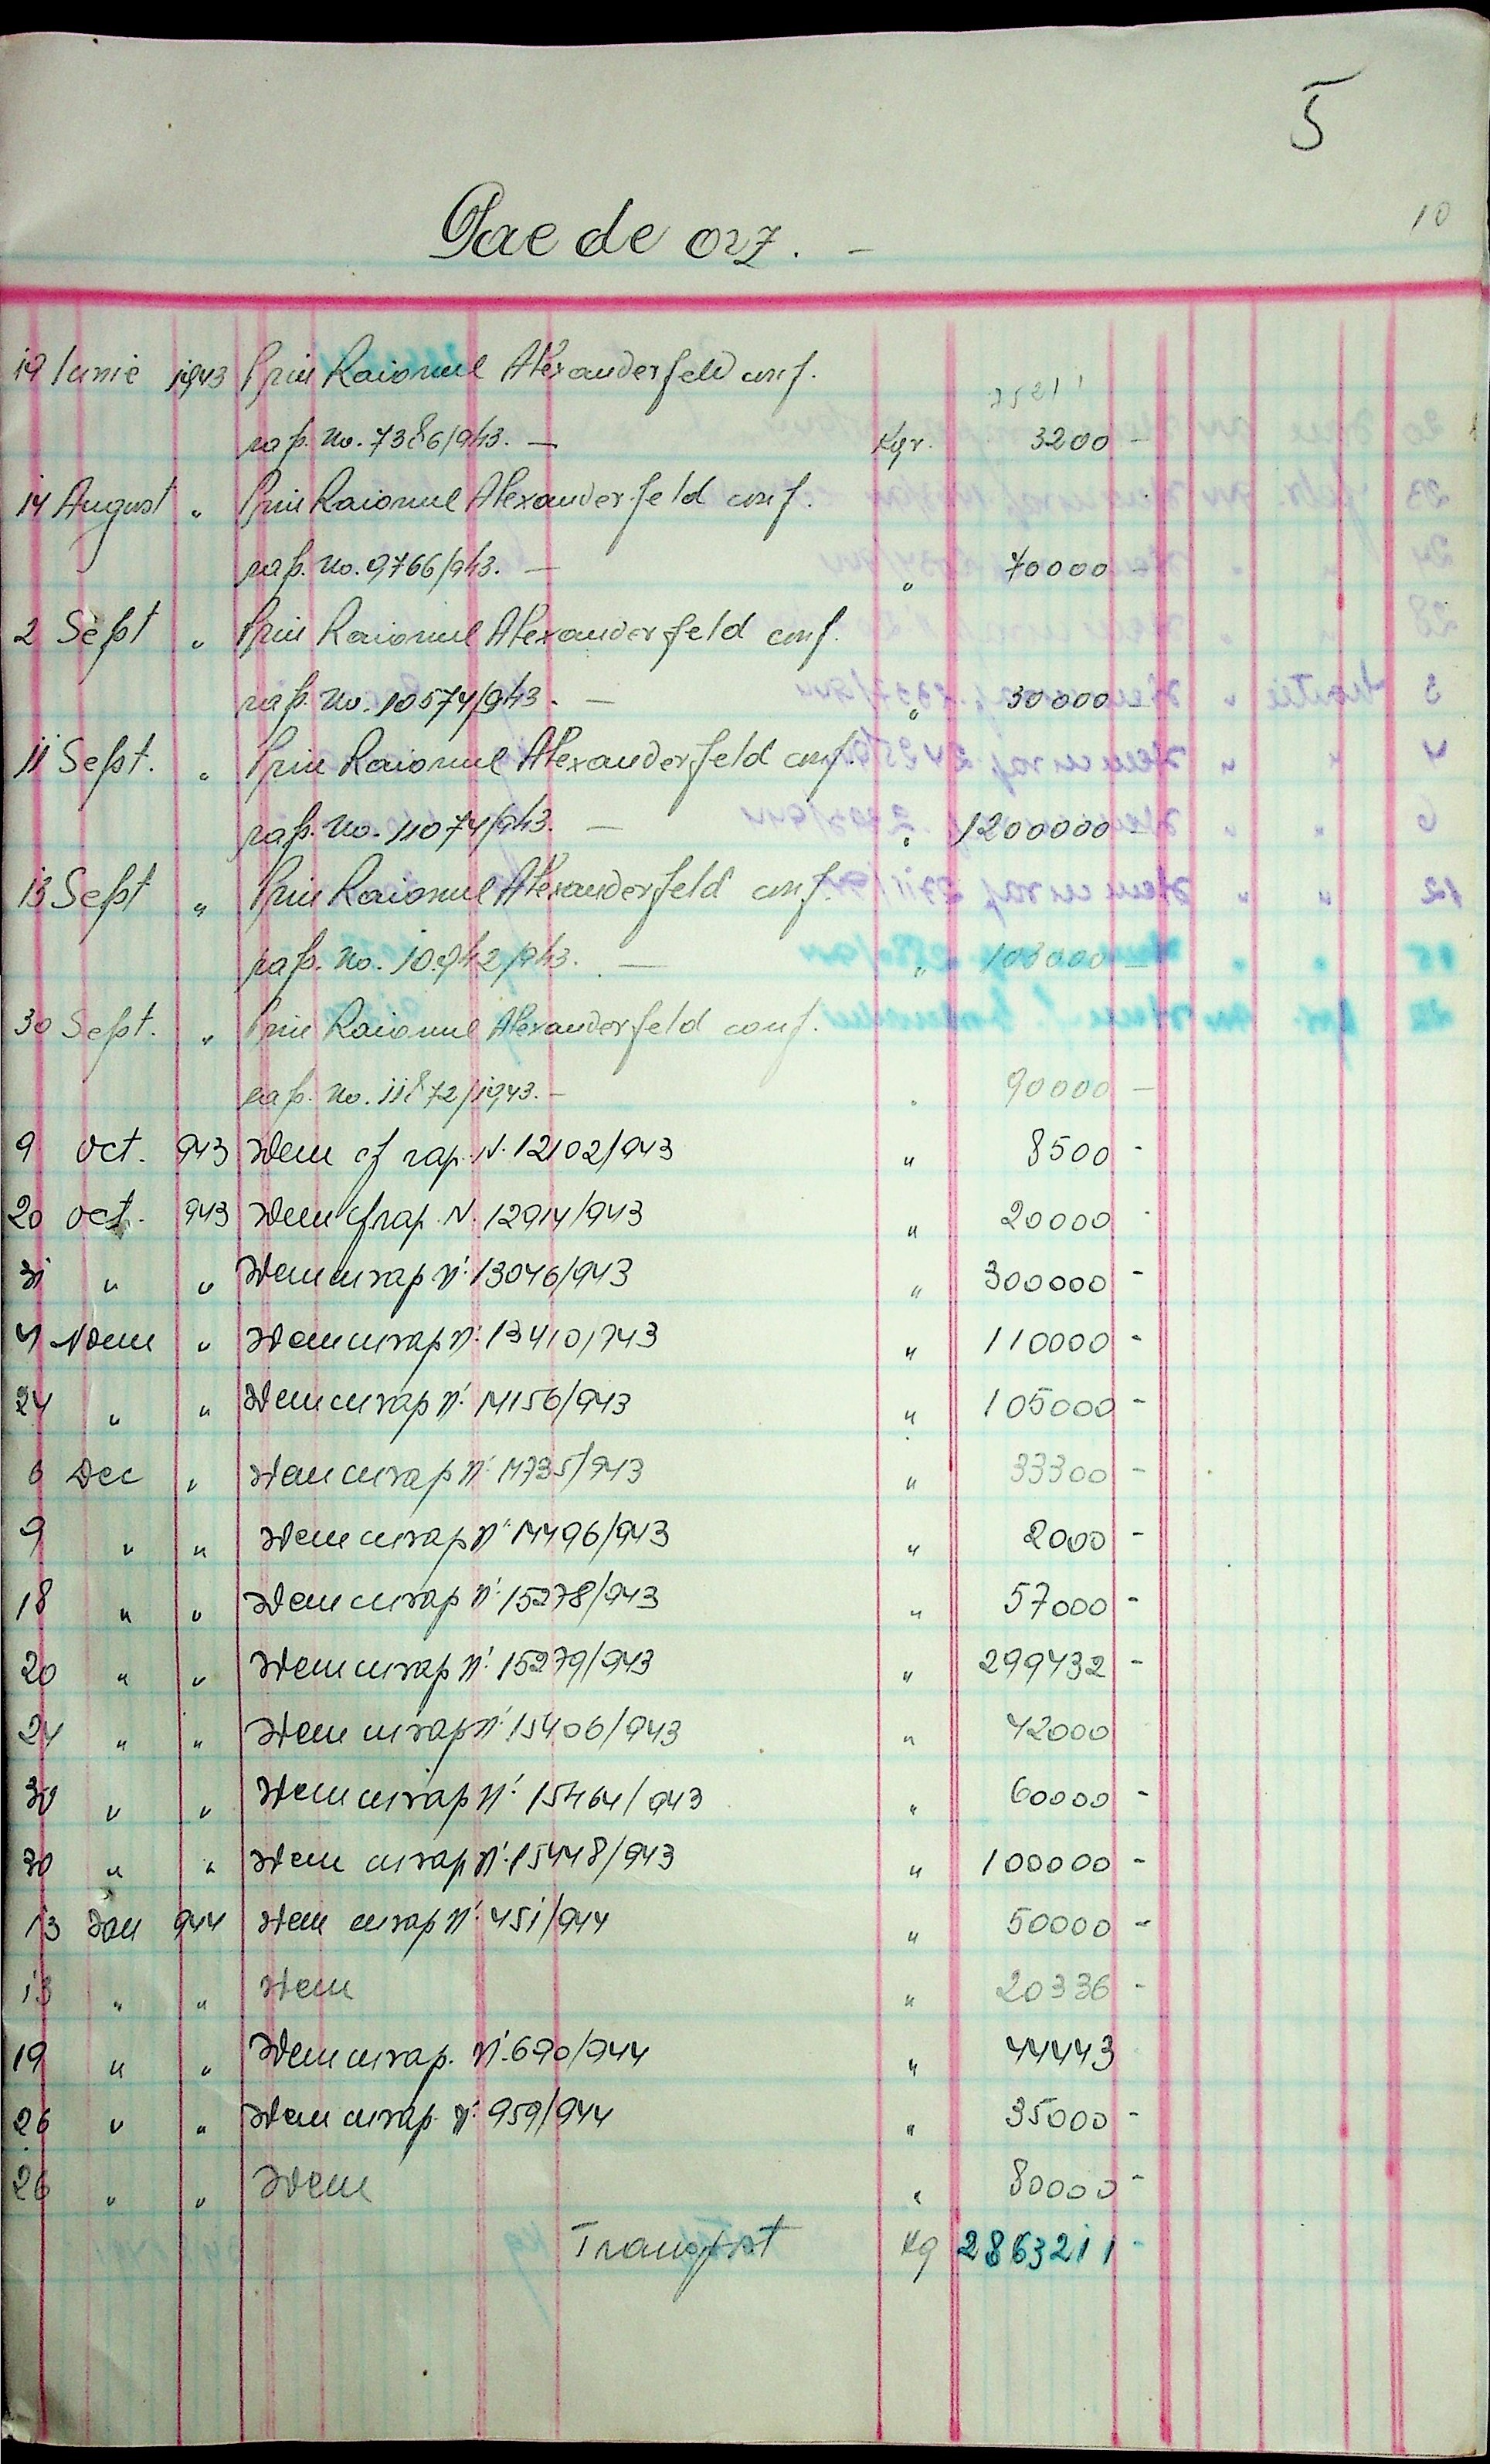 5
10
Pae de orz. —
19 Iunie 1943 Prin Raionul Alexanderfeld conf.
rap. No. 7386/943. — Kgr. 3200 —
14 August " Prin Raionul Alexanderfeld conf.
rap. No. 9766/943. — " 70000 —
2 Sept " Prin Raionul Alexanderfeld conf.
rap. No. 10574/943. — " 30000 —
11 Sept. " Prin Raionul Alexanderfeld conf.
rap. No. 11074/943. — " 1200000 —
13 Sept " Prin Raionul Alexanderfeld conf.
rap. No. 10942/943. — " 103000 —
30 Sept. " Prin Raionul Alexanderfeld conf.
rap. No. 11872/1943. — " 90000 —
9 Oct. 943 Idem cf rap. N. 12102/943 " 8500 -
20 Oct. 943 Idem cf rap. N. 12914/943 " 20000 -
31 " " Idem cu rap Nº 13046/943 " 300000 -
4 Noem " Idem cu rap Nº 13410/943 " 110000 -
24 " " Idem cu rap Nº 14156/943 " 105000 -
6 Dec " Idem cu rap Nº 14735/943 " 33300 -
9 " " Idem cu rap Nº 14496/943 " 2000 -
18 " " Idem cu rap Nº 15278/943 " 57000 -
20 " " Idem cu rap Nº 15279/943 " 299432 -
24 " " Idem cu rap Nº 15406/943 " 42000
30 " " Idem cu rap Nº 15464/943 " 60000 -
30 " " Idem cu rap Nº 15448/943 " 100000 -
13 Ian 944 Idem cu rap Nº 451/944 " 50000 -
13 " " Idem " 20336 -
19 " " Idem cu rap. Nº 690/944 " 44443
26 " " Idem cu rap. Nº 959/944 " 35000 -
26 " " Idem " 80000 -
Transport Kg 2863211 -